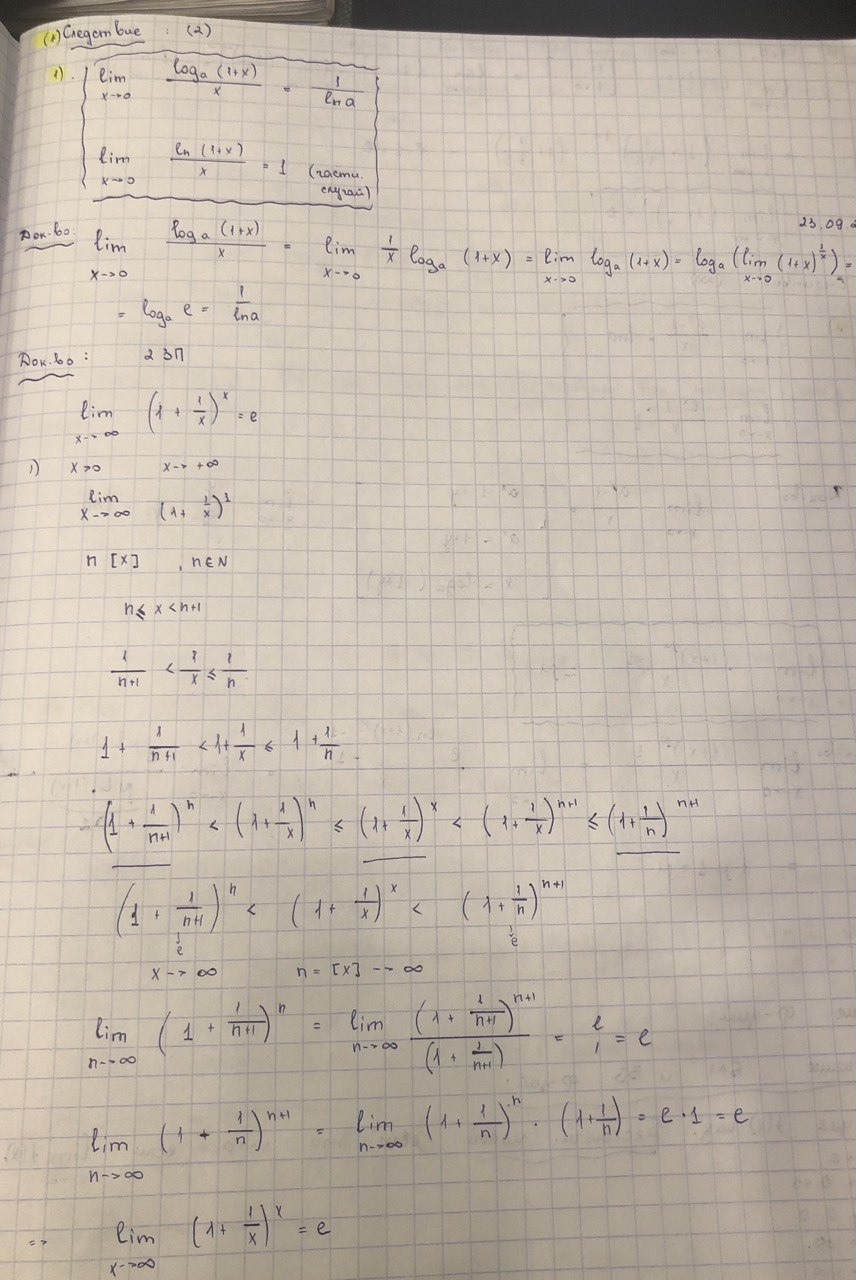 (*) Следствие : (2)
1). lim x→0 log_a (1+x) / x = 1 / ln a
lim x→0 ln (1+x) / x = 1 (частн. случай)
23.09.2
Док-во: lim x→0 log_a (1+x) / x = lim x→0 1/x log_a (1+x) = lim x→0 log_a (1+x) = log_a (lim x→0 (1+x)^(1/x)) =
= log_a e = 1 / ln a
Док-во : 2 ЗП
lim x→∞ (1 + 1/x)^x = e
1) x>0 x→ +∞
lim x→∞ (1 + 1/x)^1
n [x] , n∈N
n ≤ x < n+1
1/(n+1) < 1/x ≤ 1/n
1 + 1/(n+1) < 1+ 1/x ≤ 1 + 1/n
(1 + 1/(n+1))^n < (1 + 1/x)^n ≤ (1 + 1/x)^x < (1 + 1/x)^(n+1) ≤ (1 + 1/n)^(n+1)
(1 + 1/(n+1))^n < (1 + 1/x)^x < (1 + 1/n)^(n+1)
↓ e ↓ e
x → ∞ n = [x] → ∞
lim n→∞ (1 + 1/(n+1))^n = lim n→∞ (1 + 1/(n+1))^(n+1) / (1 + 1/(n+1)) = e/1 = e
lim n→∞ (1 + 1/n)^(n+1) = lim n→∞ (1 + 1/n)^n · (1 + 1/n) = e · 1 = e
=> lim x→∞ (1 + 1/x)^x = e